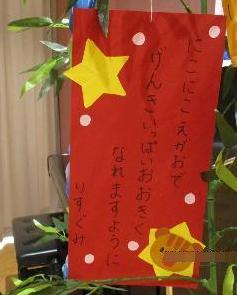 にこにこえがおで
げんきいっぱいおおきく
なれますように
りすぐみ